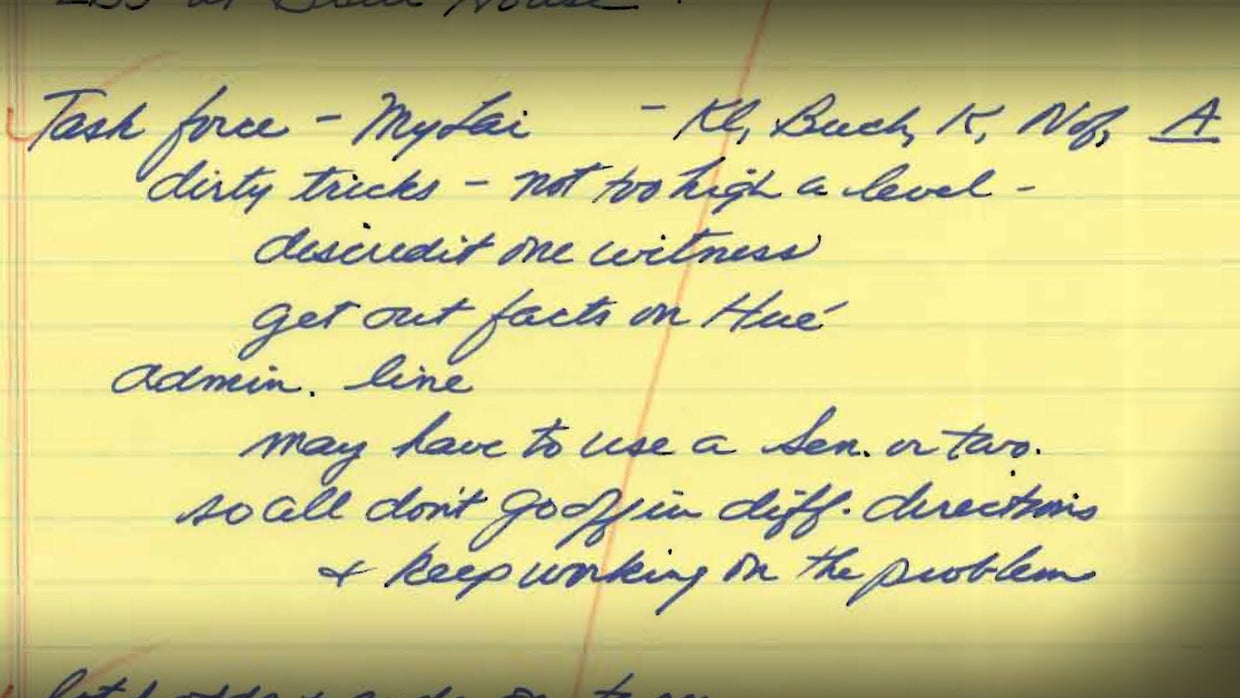 House
Task force - My Lai - Kl, Buch, K, Nof, A
dirty tricks - not too high a level -
discredit one witness
get out facts on Hué
admin. line
may have to use a Sen. or two.
so all don't go off in diff. directions
& keep working on the problem